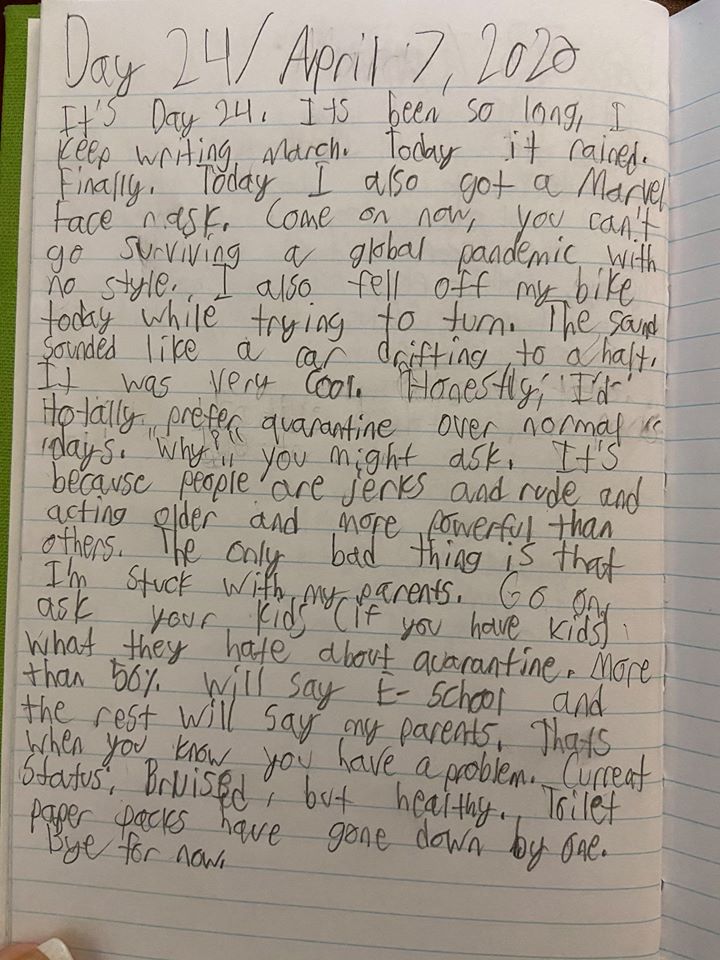 Day 24/April 7, 2020
It's Day 24. Its been so long, I
keep writing, March. Today it rained.
Finally. Today I also got a Marvel
face mask. Come on now, you can't
go surviving a global pandemic with
no style. I also fell off my bike
today while trying to turn. The sound
sounded like a car drifting to a halt.
It was very cool. Honestly, I'd
totally prefer quarantine over normal
days. "Why?" you might ask. It's
because people are jerks and rude and
acting older and more powerful than
others. The only bad thing is that
I'm stuck with my parents. Go on,
ask your kids (if you have kids)
what they hate about quarantine. More
than 56% will say E-school and
the rest will say my parents. Thats
when you know you have a problem. Current
Status: Bruised, but healthy. Toilet
paper packs have gone down by one.
Bye for now.